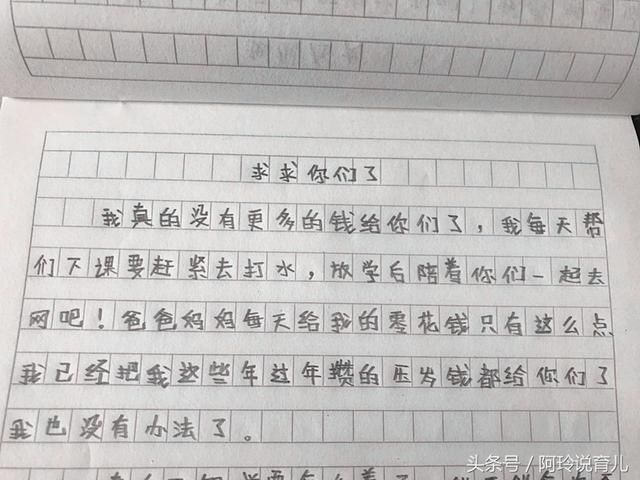 求求你们了
我真的没有更多的钱给你们了，我每天帮
们下课要赶紧去打水，放学后陪着你们一起去
网吧！爸爸妈妈每天给我的零花钱只有这么点
我已经把我这些年过年攒的压岁钱都给你们了
我也没有办法了。
头条号/阿玲说育儿